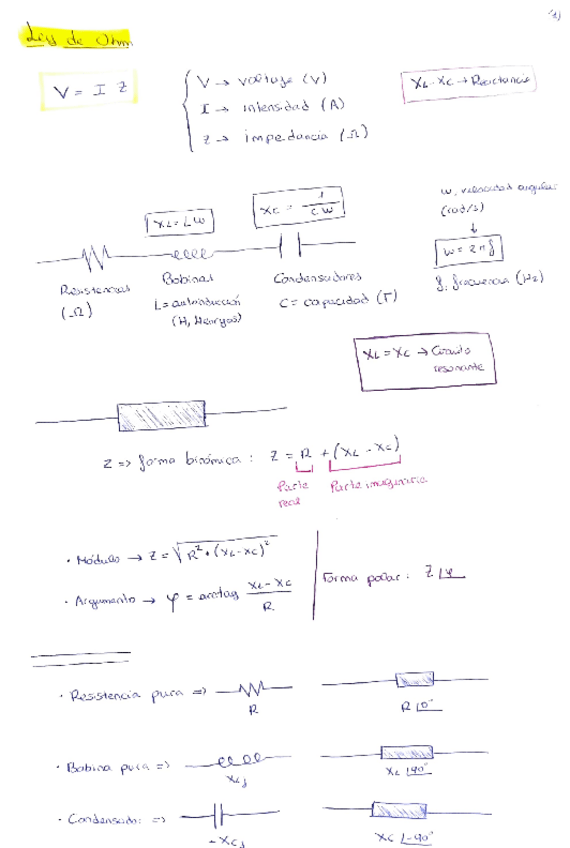 1)
Ley de Ohm
V = I Z
V → voltaje (V)
I → intensidad (A)
Z → impedancia (Ω)
XL - XC → Reactancia
XL = LW
XC = 1 / CW
W, velocidad angular
(rad/s)
↓
W = 2πf
f: frecuencia (Hz)
Resistencias
(Ω)
Bobinas
L = autoinducción
(H, Henryos)
Condensadores
C = capacidad (F)
XL = XC → Circuito
resonante
Z => forma binómica: Z = R + (XL - XC)
Parte
real
Parte imaginaria
· Módulo → Z = √R² + (XL - XC)²
· Argumento → φ = arctag XL - XC / R
Forma polar: Z∠φ
· Resistencia pura =>
R
R∠0°
· Bobina pura =>
XLj
XL∠90°
· Condensador =>
-XCj
XC∠-90°